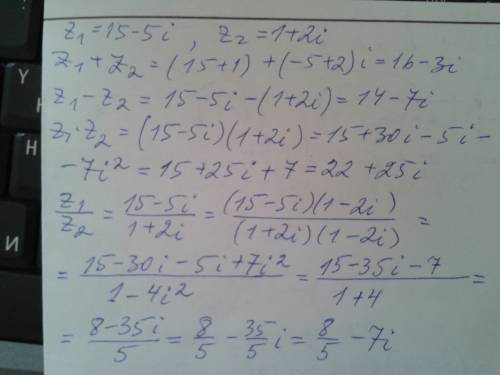 z₁=15-5i , z₂=1+2i
z₁+z₂=(15+1)+(-5+2)i=16-3i
z₁-z₂=15-5i-(1+2i)=14-7i
z₁·z₂=(15-5i)(1+2i)=15+30i-5i-
-7i²=15+25i+7=22+25i
z₁/z₂=(15-5i)/(1+2i)=((15-5i)(1-2i))/((1+2i)(1-2i))=
=(15-30i-5i+7i²)/(1-4i²)=(15-35i-7)/(1+4)=
=(8-35i)/5=8/5-35/5i=8/5-7i
Y
Н
И